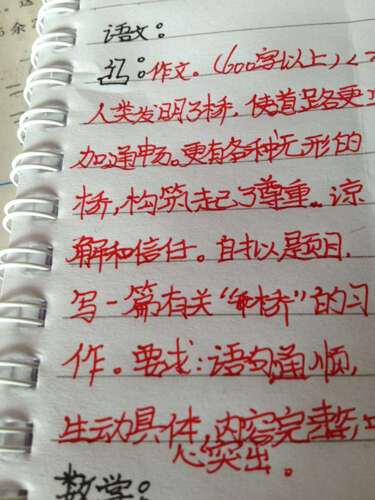 语文:
记:作文。(600字以上)<
人类发明了桥,使道路更
加通畅。更有各种无形的
桥,构筑起了尊重、谅
解和信任。自拟题目,
写一篇有关“桥”的习
作。要求:语句通顺,
生动具体,内容完整,
心突出。
数学: